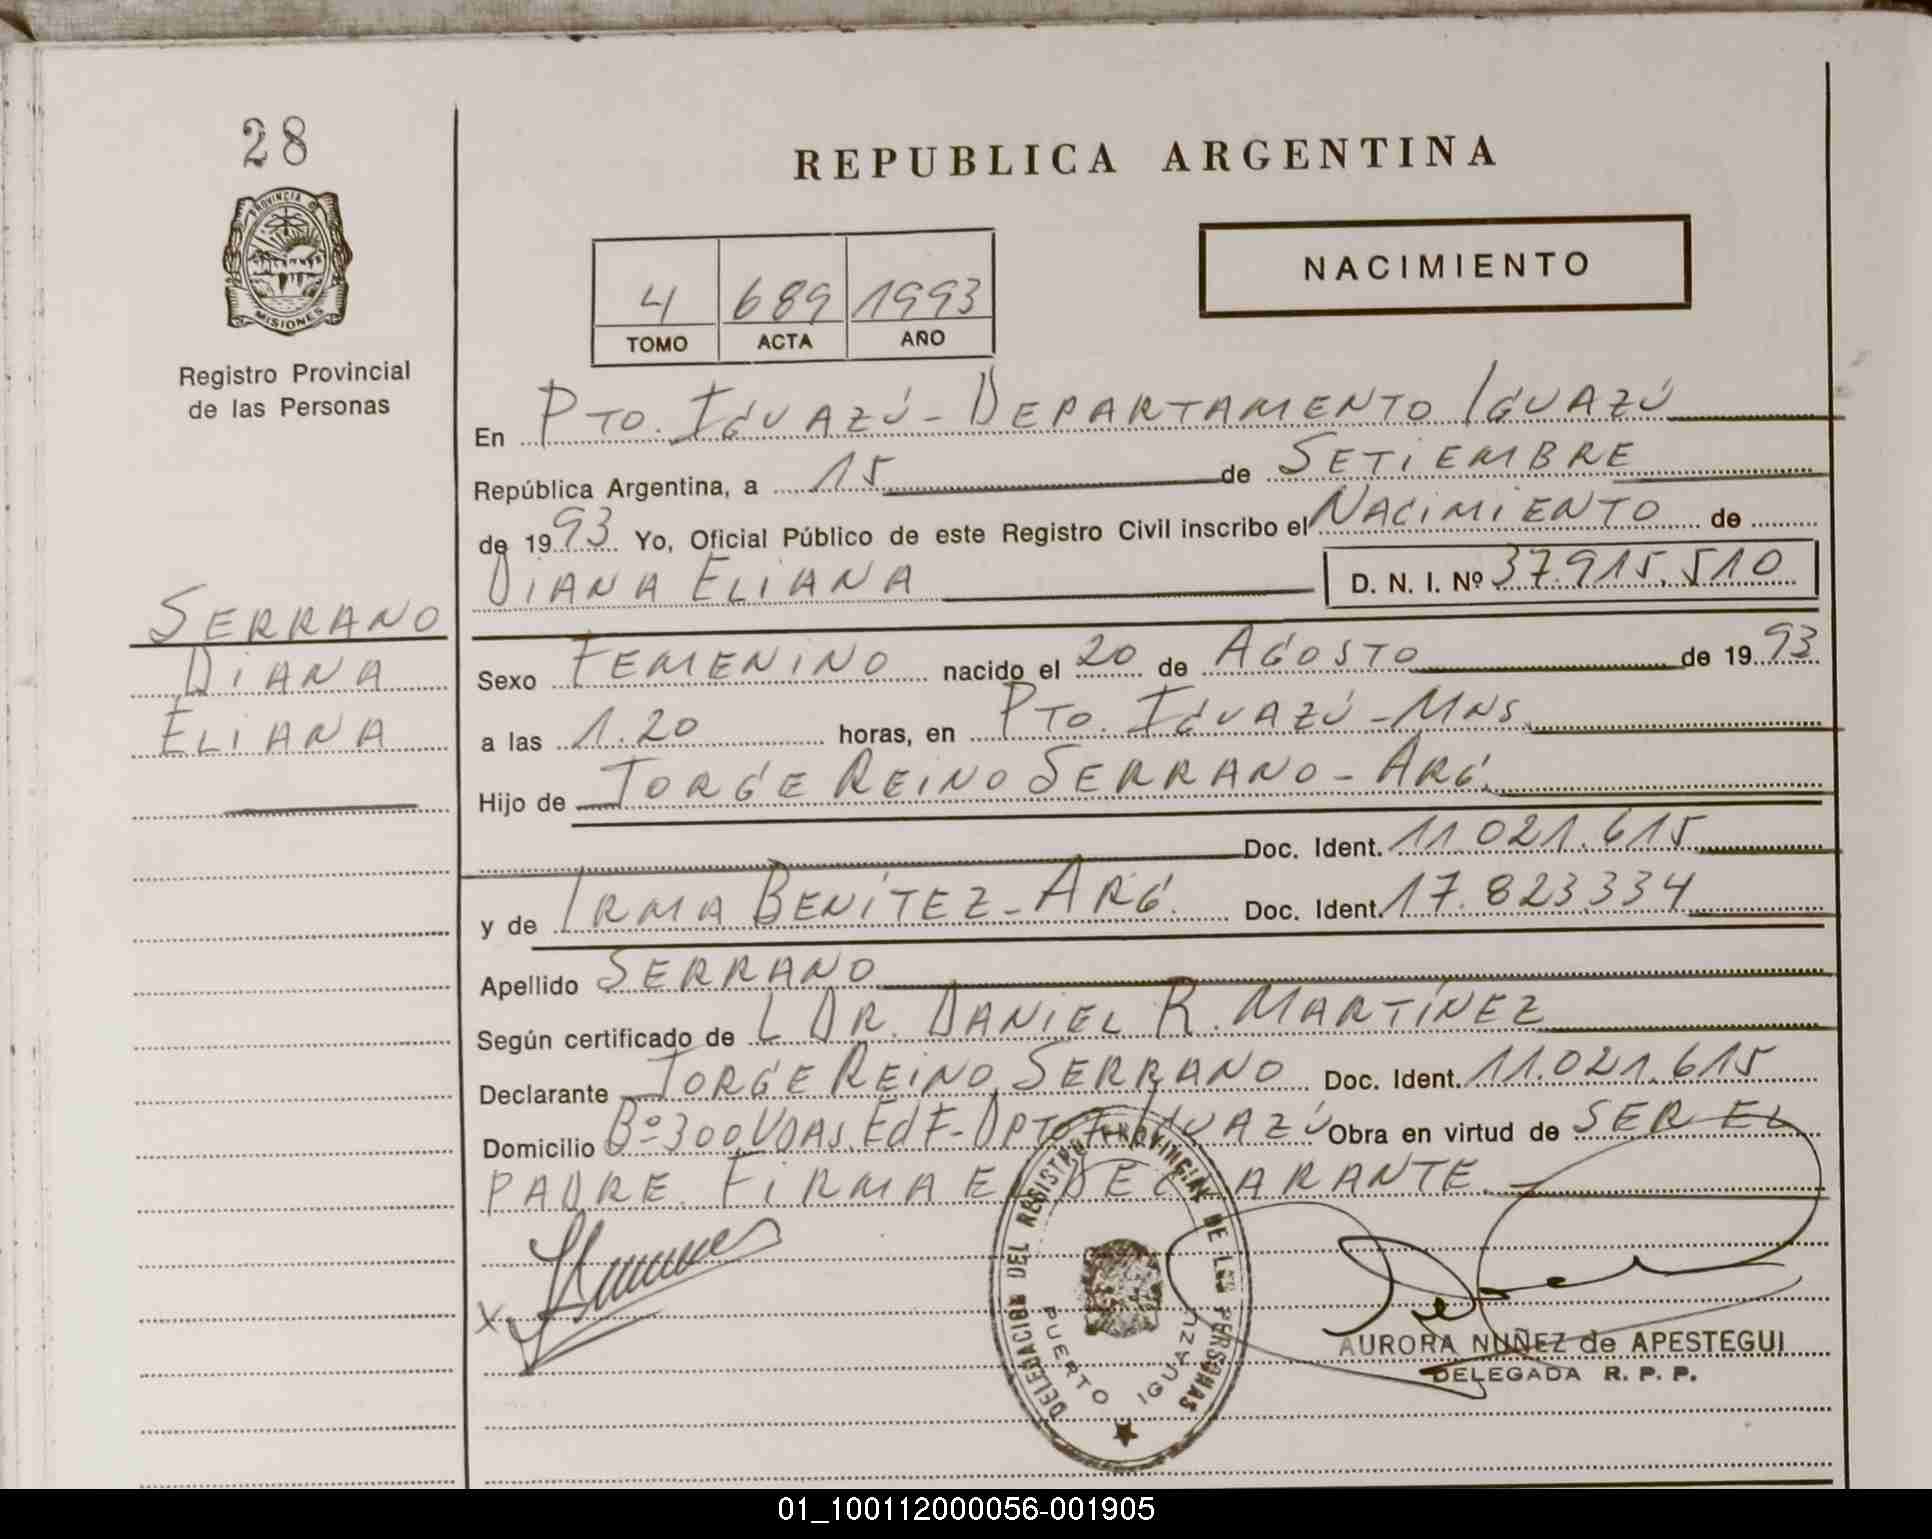 28
PROVINCIA DE
MISIONES
Registro Provincial
de las Personas
SERRANO
DIANA
ELIANA
REPUBLICA ARGENTINA
NACIMIENTO
4 689 1993
TOMO ACTA AÑO
En PTO. IGUAZÚ - DEPARTAMENTO IGUAZÚ
República Argentina, a 15 de SETIEMBRE
de 1993 Yo, Oficial Público de este Registro Civil inscribo el NACIMIENTO de
DIANA ELIANA D. N. I. Nº 37.915.510
Sexo FEMENINO nacido el 20 de AGOSTO de 1993
a las 1.20 horas, en PTO. IGUAZÚ - MNS.
Hijo de JORGE REINO SERRANO - ARG.
Doc. Ident. 11.021.615
y de IRMA BENÍTEZ - ARG. Doc. Ident. 17.823.334
Apellido SERRANO
Según certificado de DR. DANIEL R. MARTÍNEZ
Declarante JORGE REINO SERRANO Doc. Ident. 11.021.615
Domicilio Bº 300 VDAS. Ed F - DPTO IGUAZÚ Obra en virtud de SER EL
PADRE. FIRMA EL DECLARANTE.
X
DELEGACION DEL REGISTRO PROVINCIAL DE LAS PERSONAS
PUERTO IGUAZU
AURORA NUÑEZ de APESTEGUI
DELEGADA R. P. P.
01_100112000056-001905